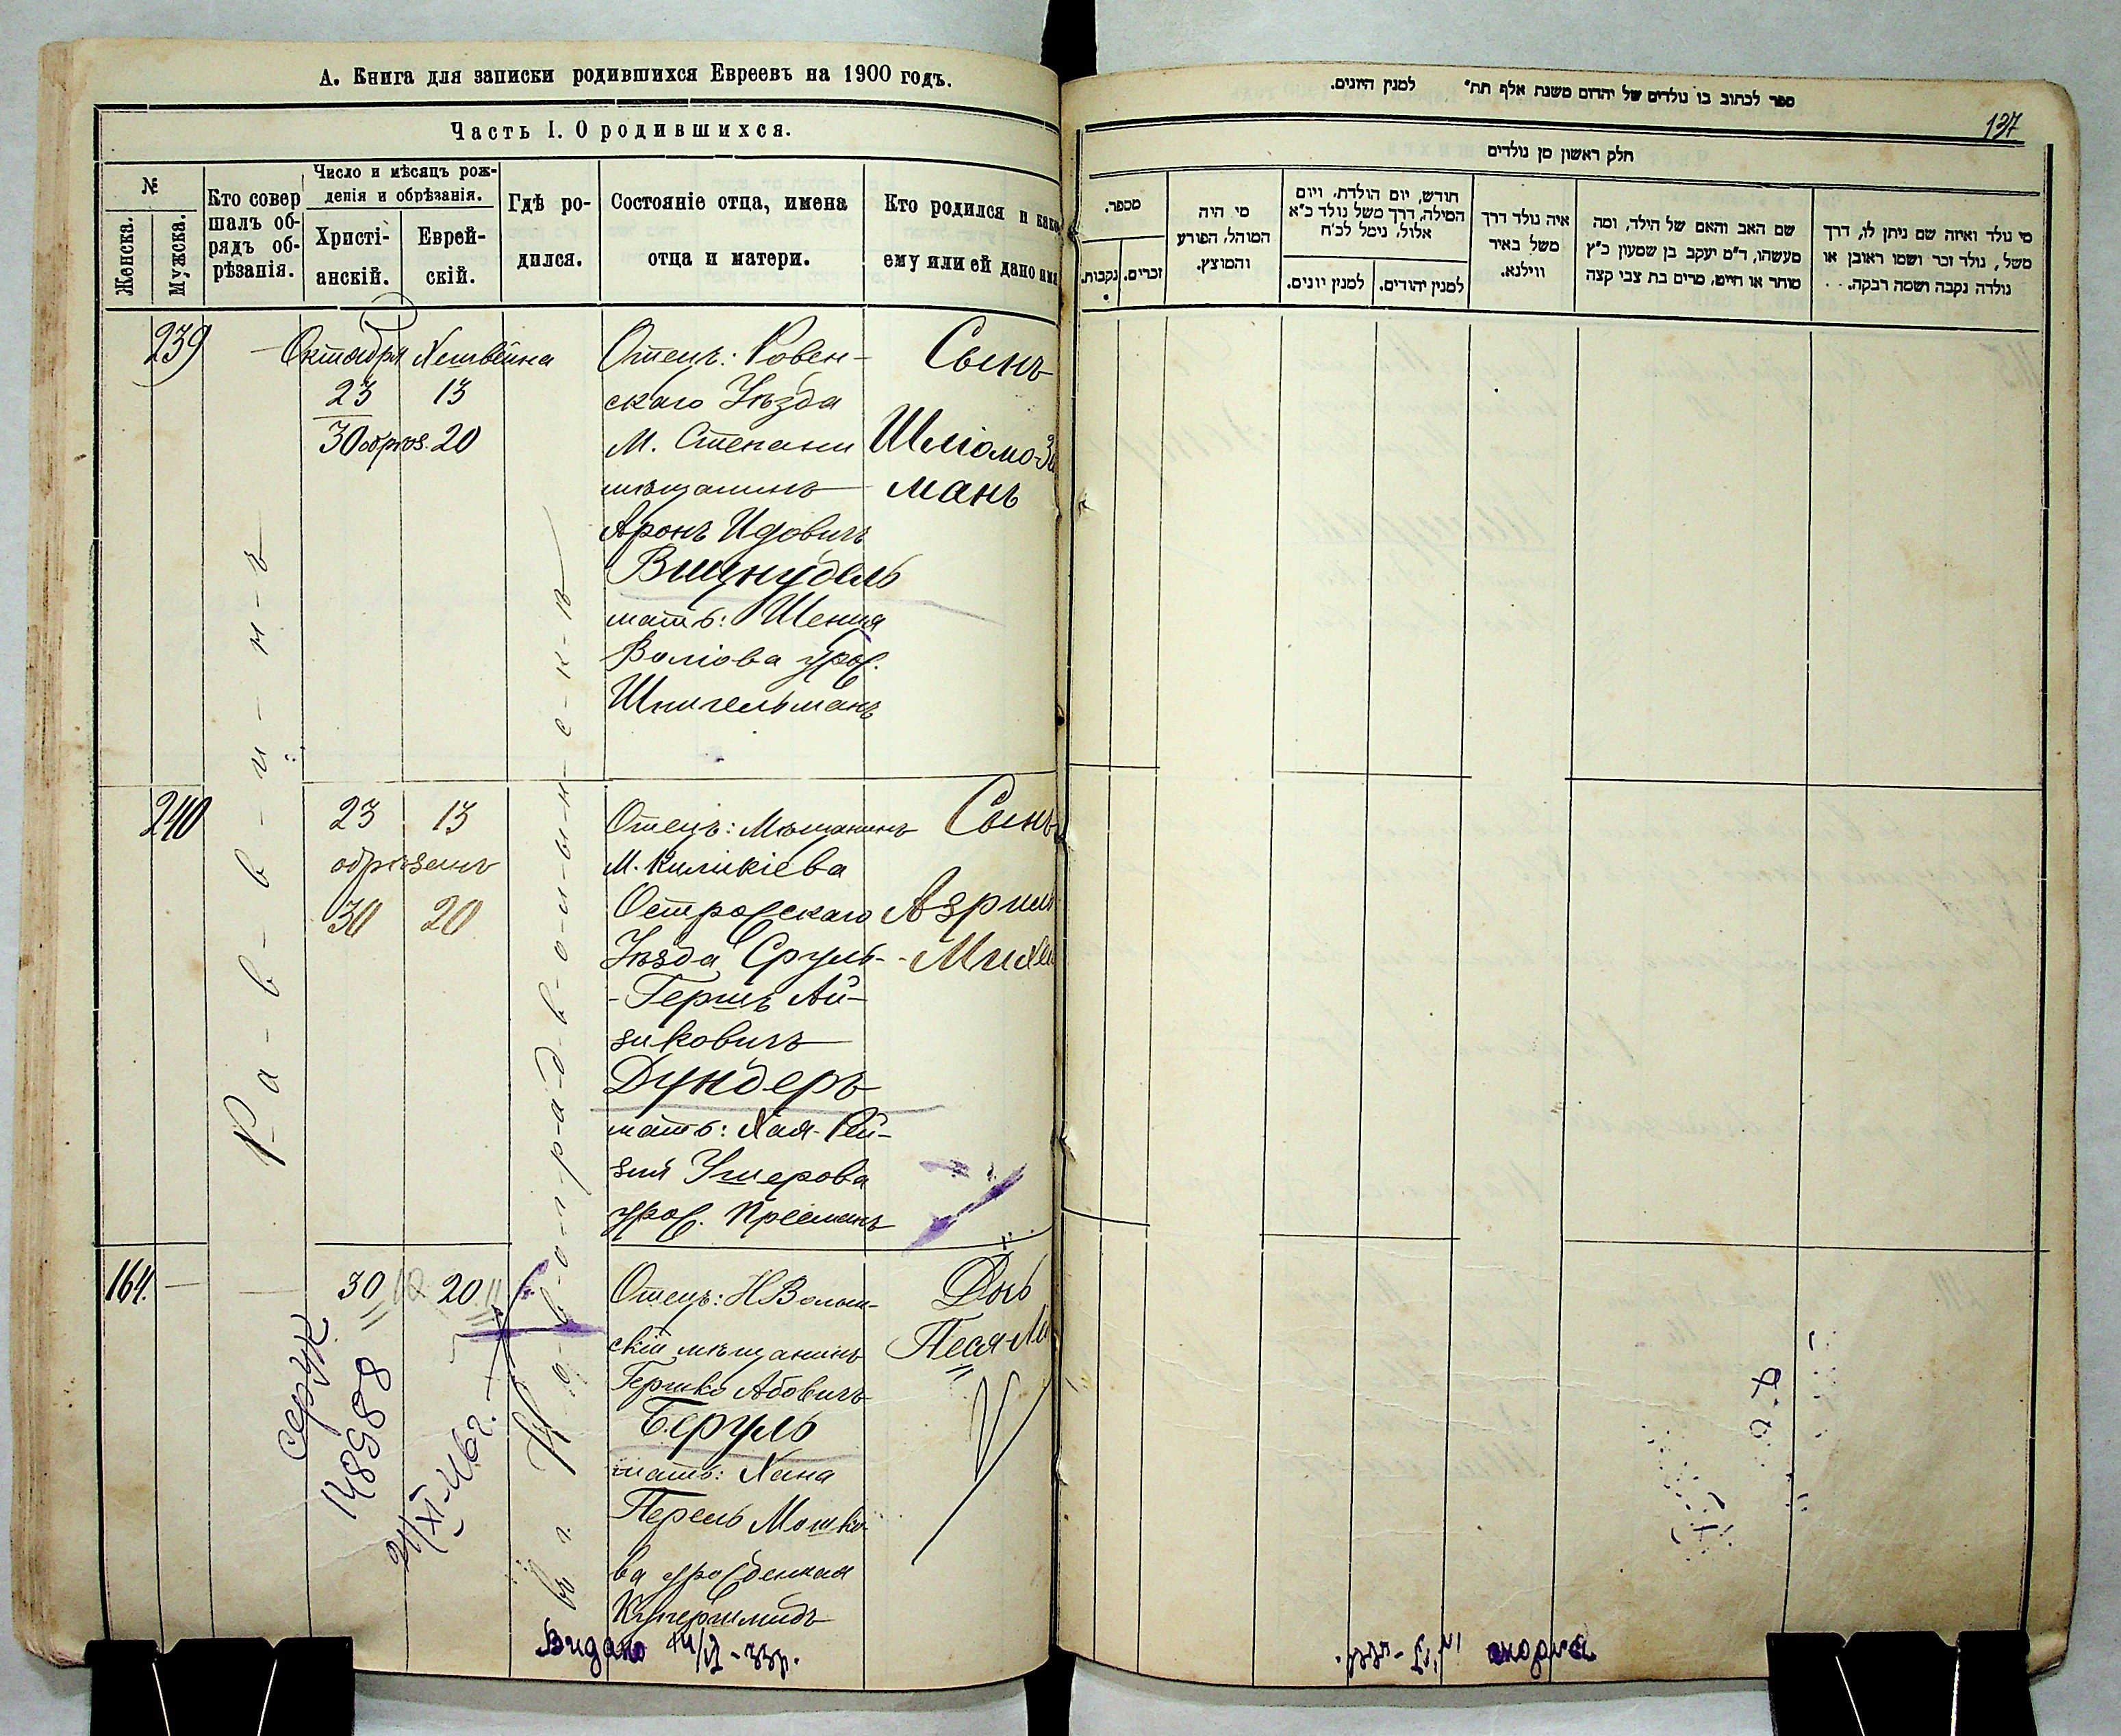 А. Книга для записки родившихся Евреевъ на 1900 годъ.
Часть I. О родившихся.
№
Женска.
Мужска.
Кто совер
шалъ об-
рядъ об-
рѣзанія.
Число и мѣсяцъ рож-
денія и обрѣзанія.
Христі-
анскій.
Еврей-
скій.
Гдѣ ро-
дился.
Состояніе отца, имена
отца и матери.
Кто родился и како
ему или ей дано имя
239
Октября Хешвейна
23 13
30 обрѣз. 20
Отецъ: Ровен-
скаго Уѣзда
М. Степани
мѣщанинъ
Аронъ Идовичъ
Вшунудель
мать: Шейня
Волкова урож.
Шпигельманъ
Сынъ
Шліомо-Зи
манъ
Раввинъ
въ г. Новоградволынскѣ
240
23 13
обрѣзанъ
30 20
Отецъ: Мѣщанинъ
М. Киликіева
Острожскаго
Уѣзда Сруль-
-Гершъ Ай-
зиковичъ
Дундеръ
мать: Хая-Рей-
зия Ушерова
урож. Пресманъ
Сынъ
Азриил
-Михел
164.
30 20
Отецъ: НВолын-
скій мѣщанинъ
Гершко Абовичъ
Беруль
мать: Хана
Перель Мошко-
ва урожденная
Купершмидъ
Дочь
Песя-Ли
серук
14898
21/XI-46г.
Видано 14/IV-33р.
ספר לכתוב בו נולדים של יהדום משנת אלף תת״ למנין היונים.
137
חלק ראשון מן נולדים
מספר.
נקבות.
זכרים.
מי היה
המוהל, הפורע
והמוצץ.
חודש, יום הולדת, ויום
המילה, דרך משל נולד כ״א
אלול, נימל לכ׳ח
למנין יונים.
למנין יהודים.
איה נולד דרך
משל באיר
ווילנא.
שם האב והאם של הילד, ומה
מעשהו, ד״מ יעקב בן שמעון כ״ץ
סוחר או חייט, מרים בת צבי קצה
מי נולד ואיזה שם ניתן לו, דרך
משל, נולד זכר ושמו ראובן או
נולדה נקבה ושמה רבקה.